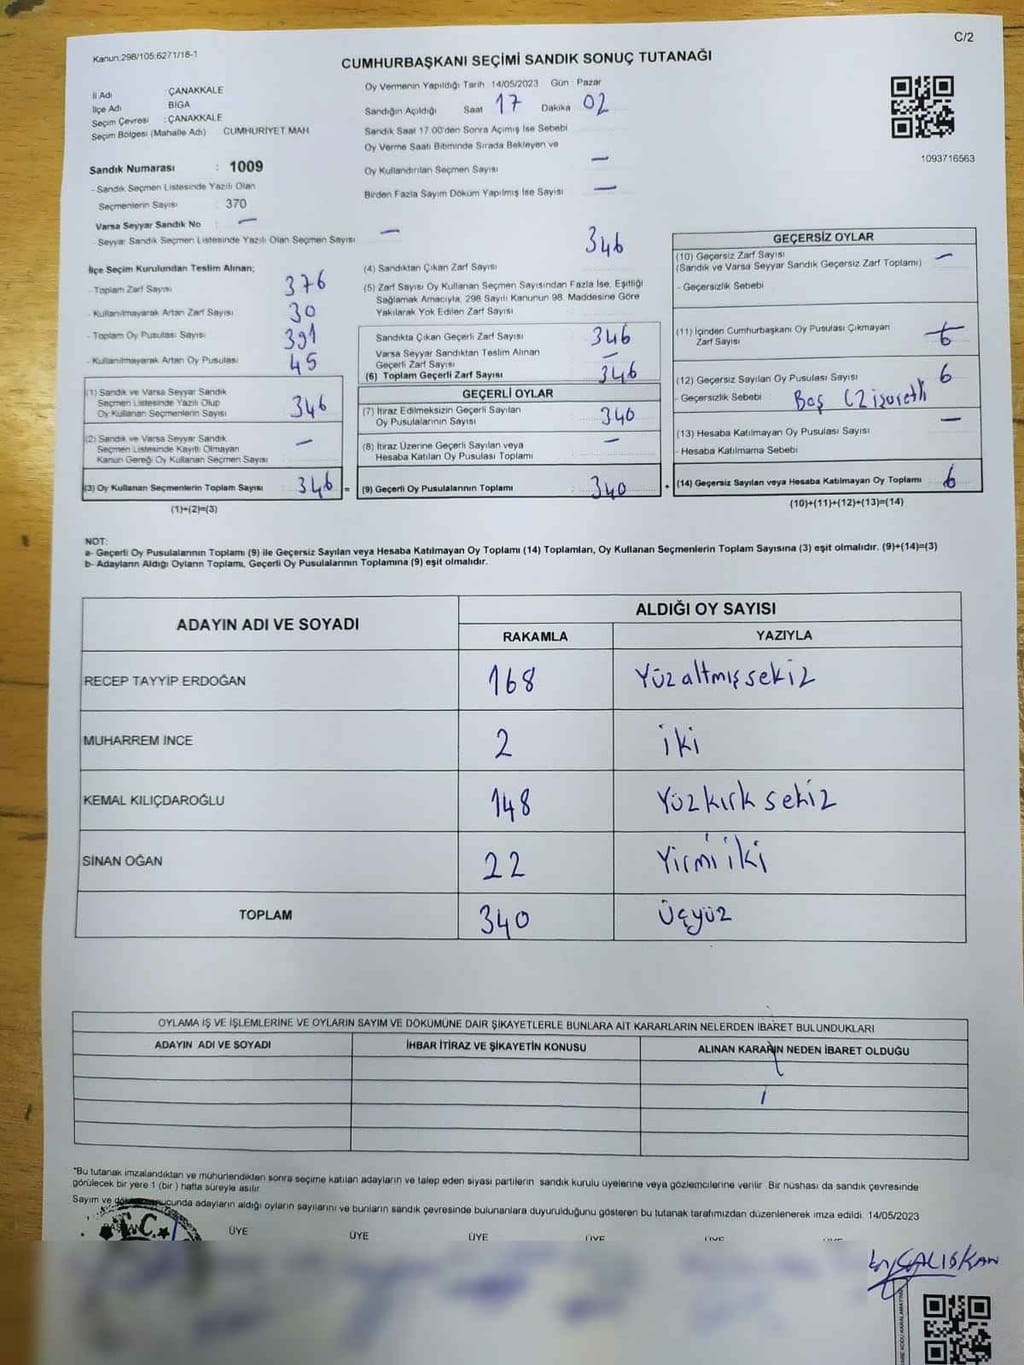 Kanun:298/105;6271/18-1
C/2
CUMHURBAŞKANI SEÇİMİ SANDIK SONUÇ TUTANAĞI
İl Adı ÇANAKKALE
İlçe Adı BİGA
Seçim Çevresi : ÇANAKKALE
Seçim Bölgesi (Mahalle Adı) CUMHURİYET MAH
Sandık Numarası : 1009
- Sandık Seçmen Listesinde Yazılı Olan
Seçmenlerin Sayısı 370
Varsa Seyyar Sandık No : —
- Seyyar Sandık Seçmen Listesinde Yazılı Olan Seçmen Sayısı —
Oy Vermenin Yapıldığı Tarih 14/05/2023 Gün : Pazar
Sandığın Açıldığı Saat 17 Dakika 02
Sandık Saat 17.00'den Sonra Açımış İse Sebebi
Oy Verme Saati Bitiminde Sırada Bekleyen ve
Oy Kullandırılan Seçmen Sayısı —
Birden Fazla Sayım Döküm Yapılmış İse Sayısı —
1093716563
İlçe Seçim Kurulundan Teslim Alınan;
- Toplam Zarf Sayısı 376
- Kullanılmayarak Artan Zarf Sayısı 30
- Toplam Oy Pusulası Sayısı 391
- Kullanılmayarak Artan Oy Pusulası 45
(1) Sandık ve Varsa Seyyar Sandık
Seçmen Listesinde Yazılı Olup
Oy Kullanan Seçmenlerin Sayısı 346
(2) Sandık ve Varsa Seyyar Sandık
Seçmen Listesinde Kayıtlı Olmayan
Kanun Gereği Oy Kullanan Seçmen Sayısı —
(3) Oy Kullanan Seçmenlerin Toplam Sayısı 346 =
(1)+(2)=(3)
(4) Sandıktan Çıkan Zarf Sayısı 346
(5) Zarf Sayısı Oy Kullanan Seçmen Sayısından Fazla İse, Eşitliği
Sağlamak Amacıyla, 298 Sayılı Kanunun 98. Maddesine Göre
Yakılarak Yok Edilen Zarf Sayısı
Sandıkta Çıkan Geçerli Zarf Sayısı 346
Varsa Seyyar Sandıktan Teslim Alınan
Geçerli Zarf Sayısı —
(6) Toplam Geçerli Zarf Sayısı 346
GEÇERLİ OYLAR
(7) İtiraz Edilmeksizin Geçerli Sayılan
Oy Pusulalarının Sayısı 340
(8) İtiraz Üzerine Geçerli Sayılan veya
Hesaba Katılan Oy Pusulası Toplamı —
(9) Geçerli Oy Pusulalarının Toplamı : 340 +
GEÇERSİZ OYLAR
(10) Geçersiz Zarf Sayısı —
(Sandık ve Varsa Seyyar Sandık Geçersiz Zarf Toplamı)
- Geçersizlik Sebebi
(11) İçinden Cumhurbaşkanı Oy Pusulası Çıkmayan
Zarf Sayısı
(12) Geçersiz Sayılan Oy Pusulası Sayısı 6
- Geçersizlik Sebebi : Boş
(13) Hesaba Katılmayan Oy Pusulası Sayısı —
- Hesaba Katılmama Sebebi
(14) Geçersiz Sayılan veya Hesaba Katılmayan Oy Toplamı 6
(10)+(11)+(12)+(13)=(14)
NOT:
a- Geçerli Oy Pusulalarının Toplamı (9) ile Geçersiz Sayılan veya Hesaba Katılmayan Oy Toplamı (14) Toplamları, Oy Kullanan Seçmenlerin Toplam Sayısına (3) eşit olmalıdır. (9)+(14)=(3)
b- Adayların Aldığı Oyların Toplamı, Geçerli Oy Pusulalarının Toplamına (9) eşit olmalıdır.
ADAYIN ADI VE SOYADI ALDIĞI OY SAYISI
RAKAMLA YAZIYLA
RECEP TAYYİP ERDOĞAN 168 Yüzaltmışsekiz
MUHARREM İNCE 2 iki
KEMAL KILIÇDAROĞLU 148 Yüzkırksekiz
SİNAN OĞAN 22 Yirmiiki
TOPLAM 340 Üçyüz
OYLAMA İŞ VE İŞLEMLERİNE VE OYLARIN SAYIM VE DÖKÜMÜNE DAİR ŞİKAYETLERLE BUNLARA AİT KARARLARIN NELERDEN İBARET BULUNDUKLARI
ADAYIN ADI VE SOYADI İHBAR İTİRAZ VE ŞİKAYETİN KONUSU ALINAN KARARIN NEDEN İBARET OLDUĞU
"Bu tutanak imzalandıktan ve mühürlendikten sonra seçime katılan adayların ve talep eden siyasi partilerin sandık kurulu üyelerine veya gözlemcilerine verilir. Bir nüshası da sandık çevresinde
görülecek bir yere 1 (bir) hafta süreyle asılır.
Sayım ve ucunda adayların aldığı oyların sayılarını ve bunların sandık çevresinde bulunanlara duyurulduğunu gösteren bu tutanak tarafımızdan düzenlenerek imza edildi. 14/05/2023
T.C.
ÜYE ÜYE ÜYE
ÇALIŞKAN